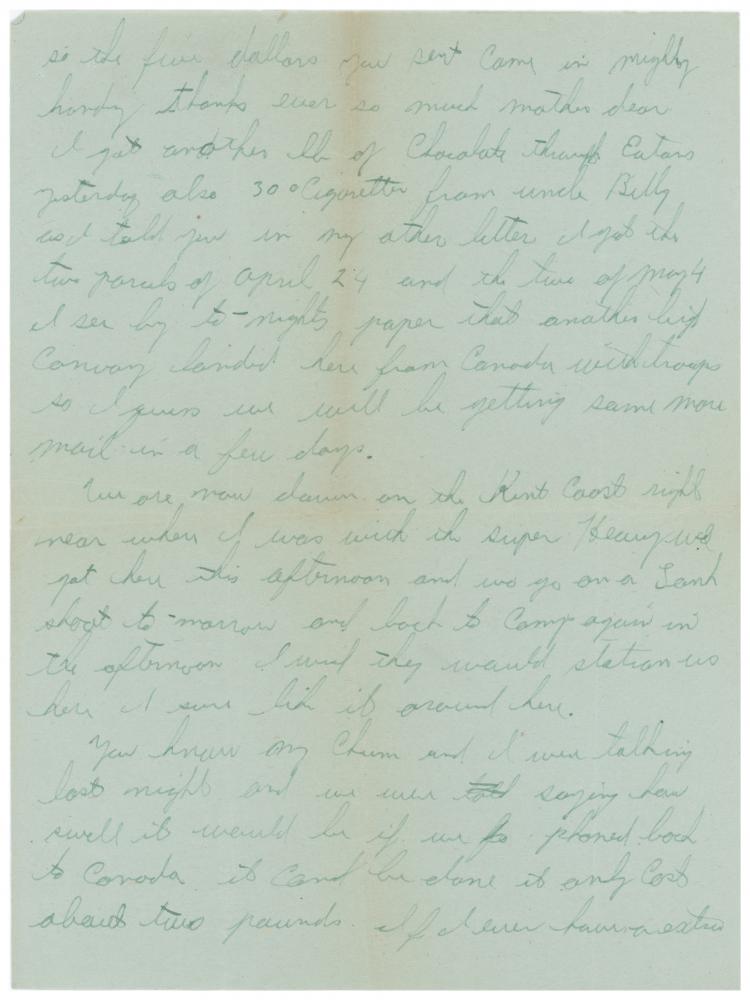 so the five dollars you sent came in mighty
handy thanks ever so much mother dear
I got another lb of Chocolate through Eatons
yesterday also 300 Cigarettes from uncle Billy
as I told you in my other letter I got the
two parcels of April 24 and the two of may 4
I see by to-nights paper that another big
Convoy landed here from Canada with troops
so I guess we will be getting some more
mail in a few days.
We are now down on the Kent Coast right
near where I was with the super Heavy we
got here this afternoon and we go on a Tank
shoot to-morrow and back to Camp again in
the afternoon I wish they would station us
here I sure like it around here.
You know my Chum and I were talking
last night and we were told saying how
swell it would be if we phoned back
to Canada it can be done it only Cost
about two pounds. If I ever have a extra